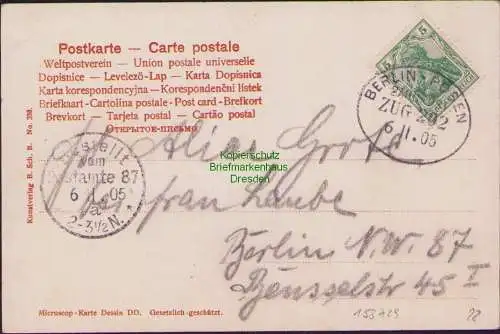 Postkarte — Carte postale
Weltpostverein — Union postale universelle
Dopisnice — Levelező-Lap — Karta Dopisnica
Karta korespondencyjna — Korespondenční listek
Briefkaart - Cartolina postale - Post card - Brefkort
Brevkort — Tarjeta postal — Cartão postal
Открытое-письмо
5
BERLIN
ZUG
6 11.05
Bestellt
vom
Postamte 87
6 11.05
2-3½N.
Kopierschutz
Briefmarkenhaus
Dresden
Frau
Berlin N.W. 87
Beusselstr 45 I
Kunstverlag B. Sch. B. No. 288.
Microscop-Karte Dessin DD. Gesetzlich-geschützt.
153729